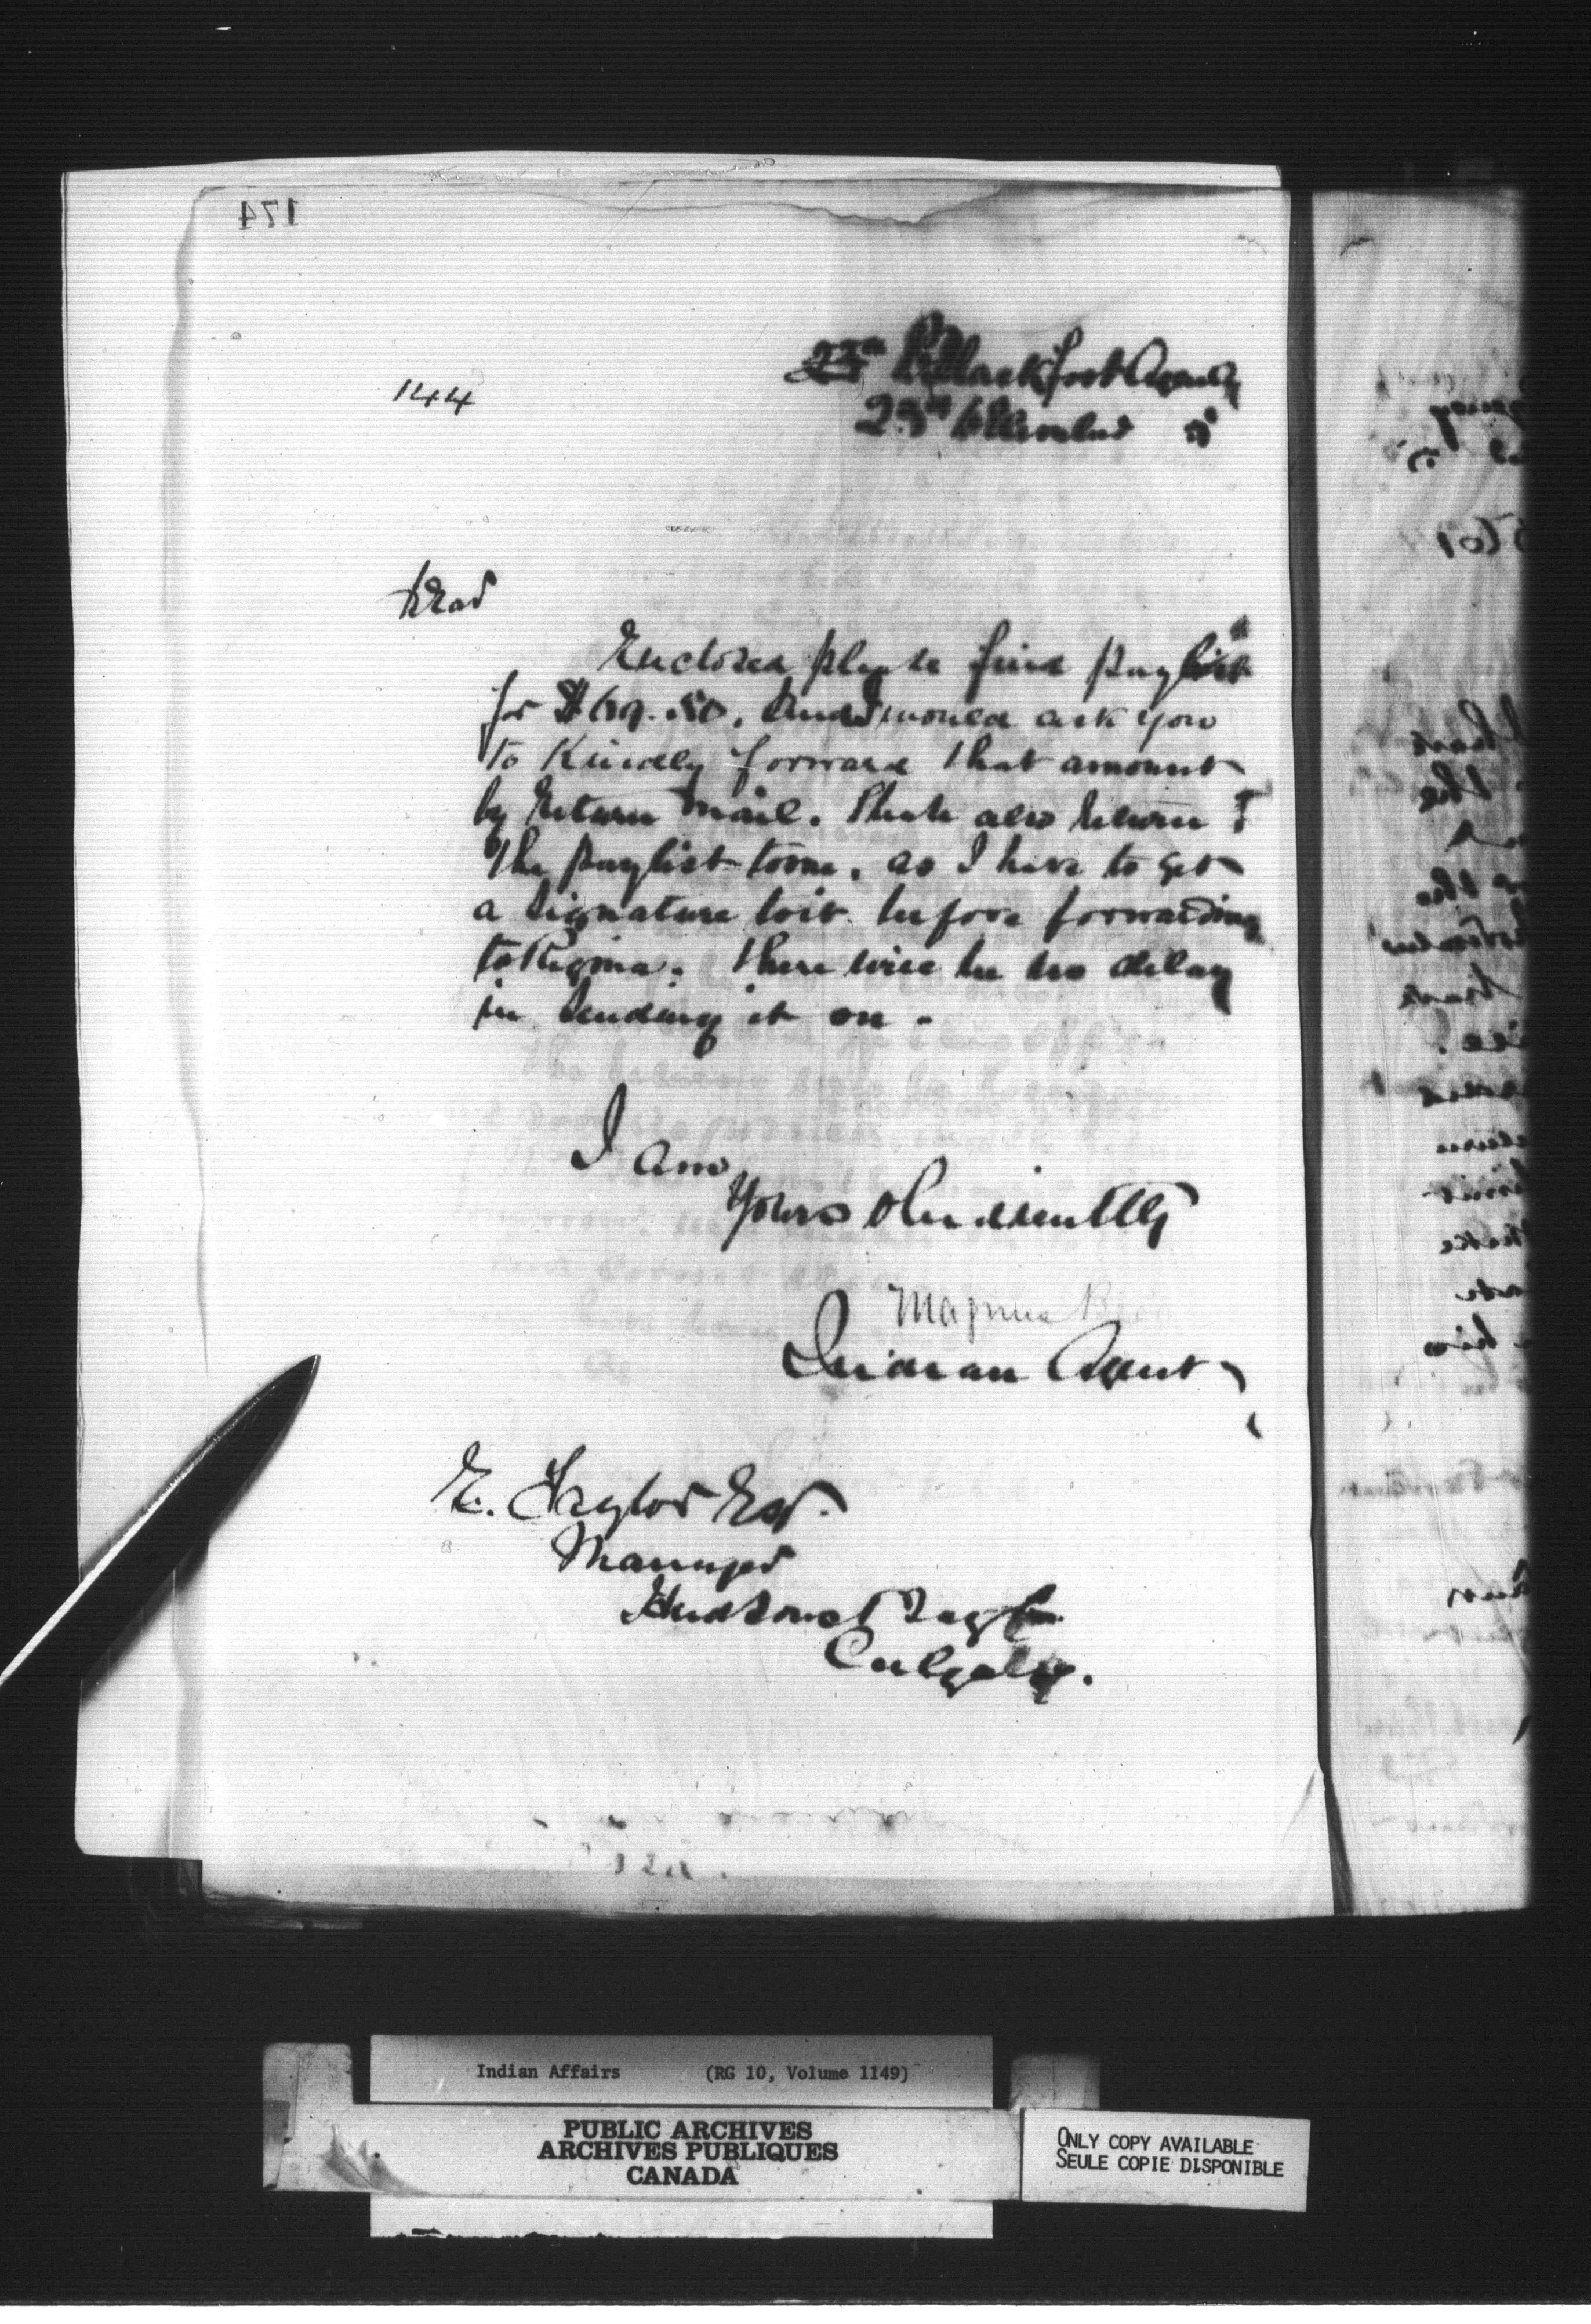 174
144
Blackfoot Agency
23rd December
Dear
Enclosed please find paylist
for $69.50. And I would ask you
to Kindly forward that amount
by return mail. Please also return
the paylist to me, as I have to get
a signature to it before forwarding
to Regina. There will be no delay
in sending it on.
I am
Yours obediently
Magnus
Indian Agent
E. Taylor Esq.
Manager
Hudsons Bay Co.
Calgary.
Indian Affairs (RG 10, Volume 1149)
PUBLIC ARCHIVES
ARCHIVES PUBLIQUES
CANADA
ONLY COPY AVAILABLE
SEULE COPIE DISPONIBLE